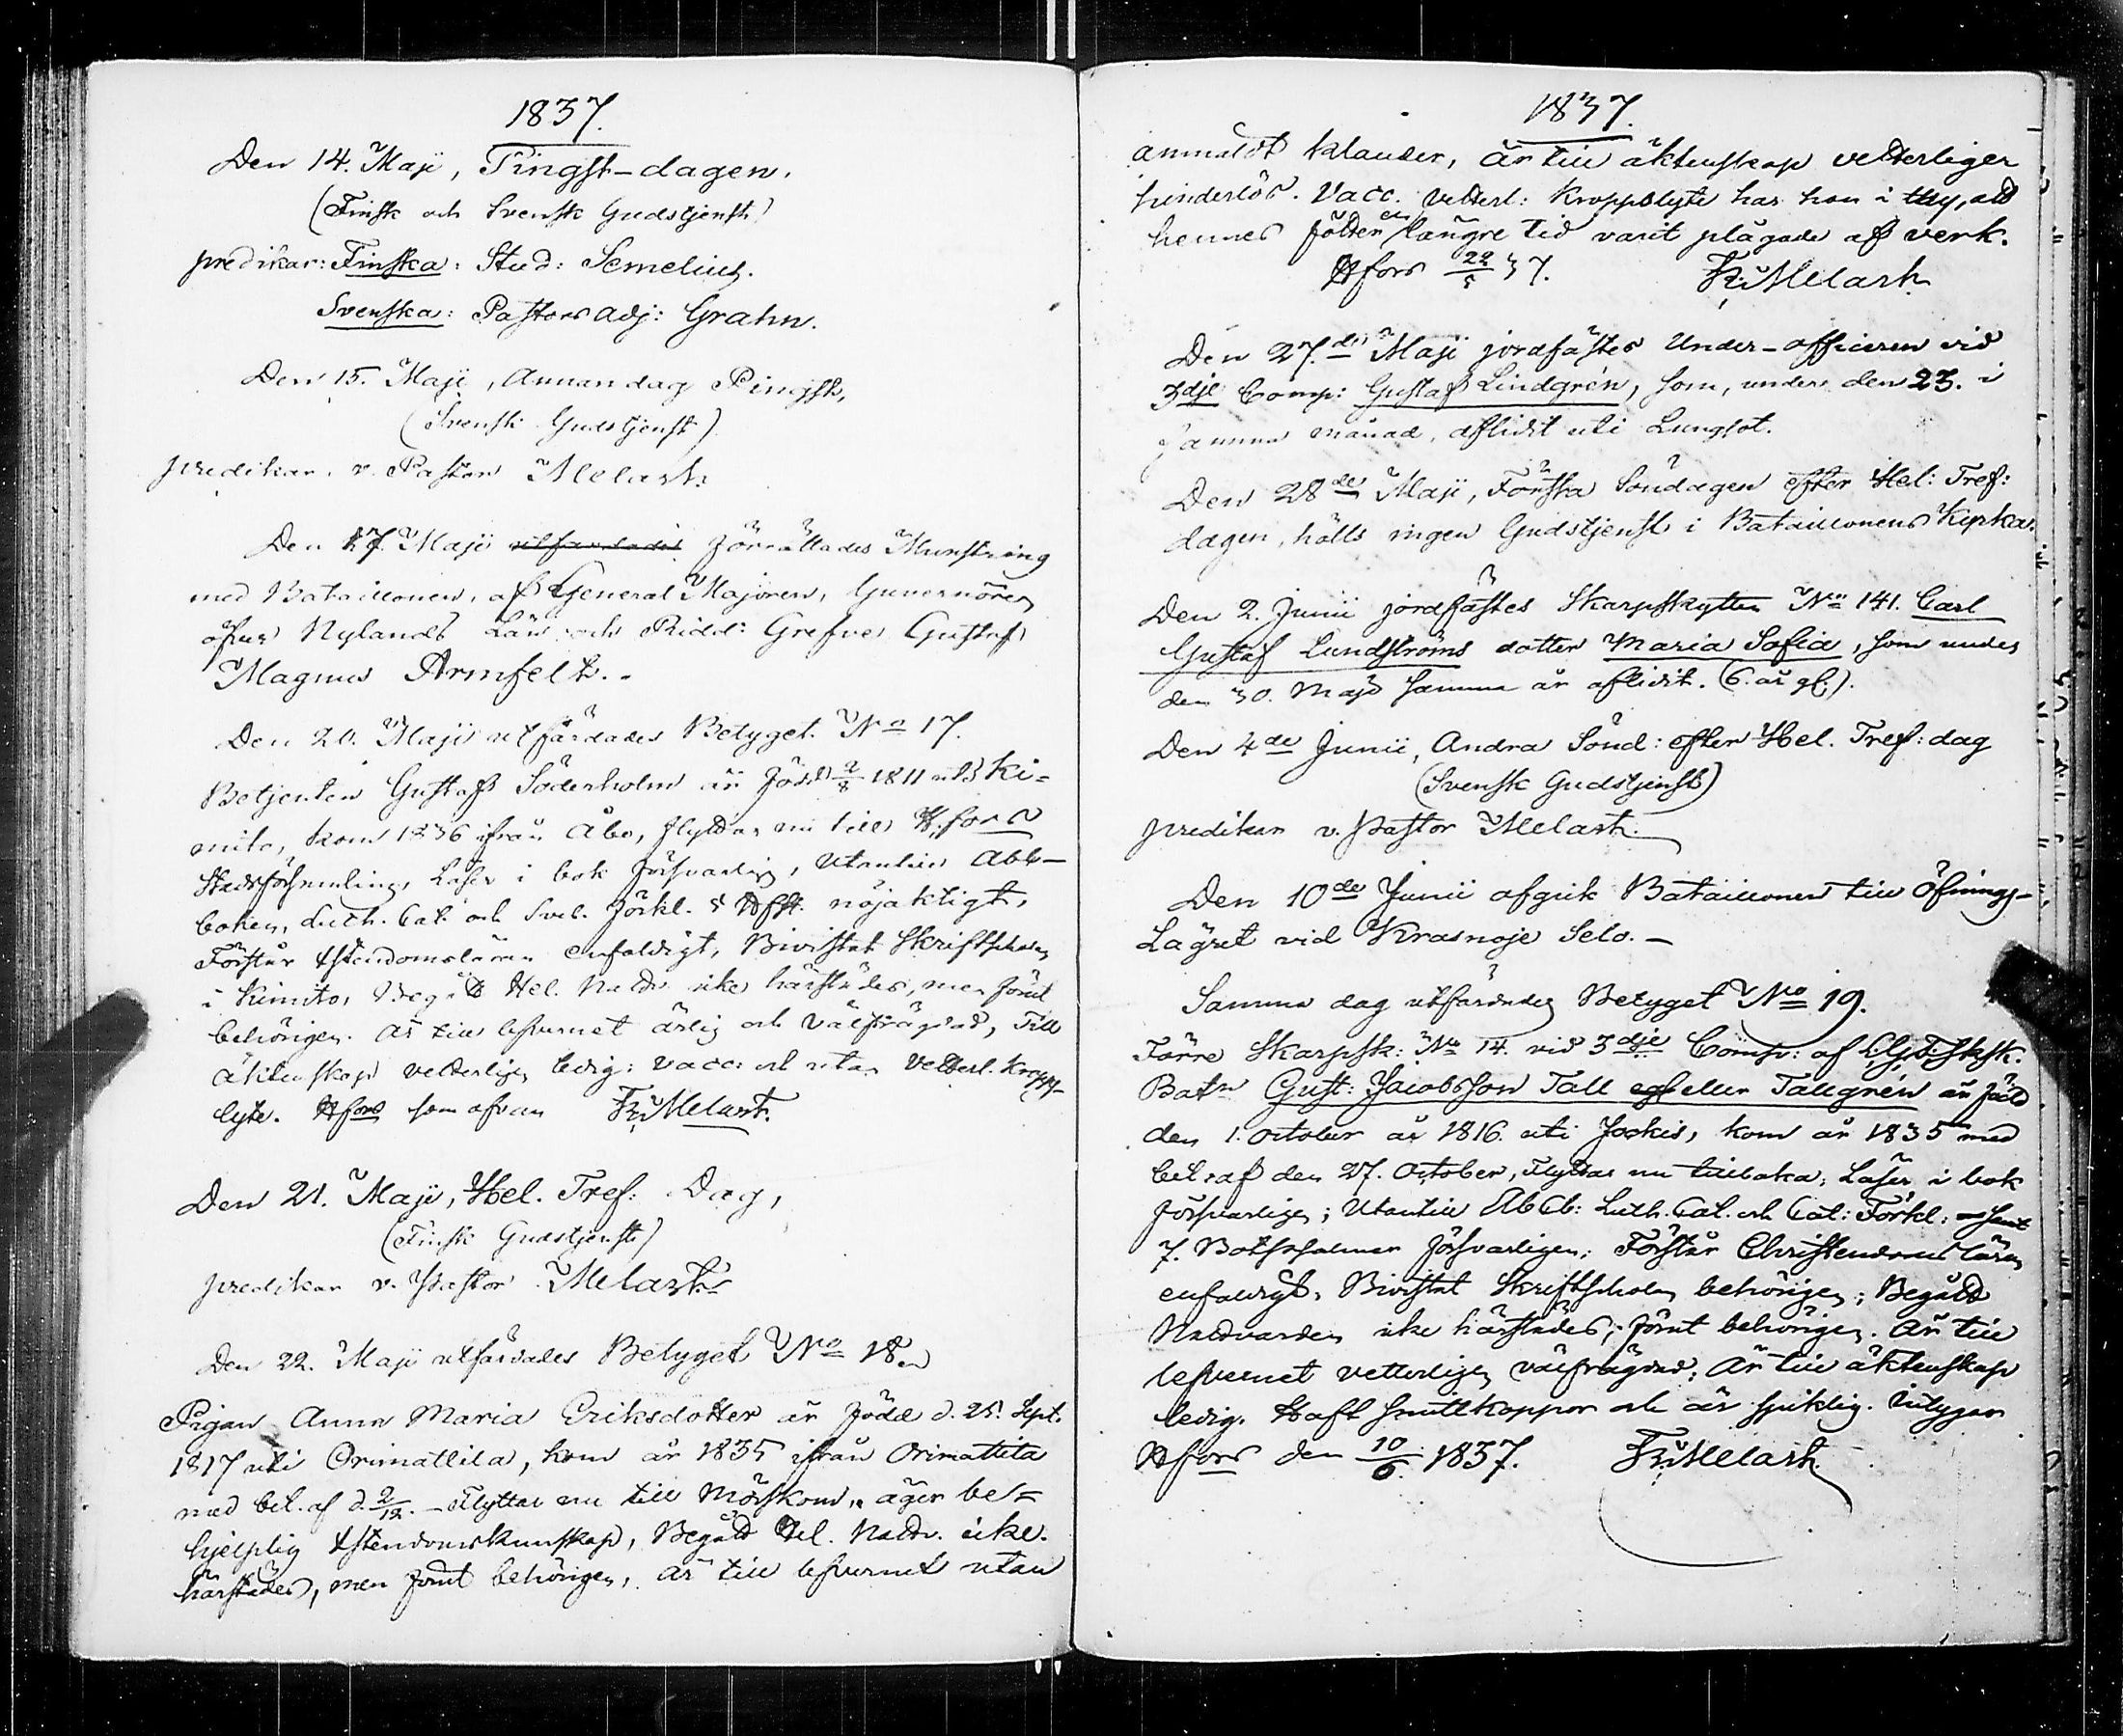 1837.
Den 14. Maji, Pingst-dagen.
(Finsk och Svensk Gudstjenst)
predikar: Finska: Stud: Semelius.
Svenska: Pastors adj: Grahn.
Den 15. Maji, Annandag Pingst,
(Svensk Gudstjenst)
predikar v. Pastor Melart.
Den 17. Maji utfärdades förrättades Munstring
med Bataillonen, af General Majoren, Guvernören
öfver Nylands Län och Ridd: Grefve Gustaf
Magnus Armfelt.
Den 20. Maji utfärdades Betyget No 17.
Betjenten Gustaf Söderholm är född 2/8 1811 uti Ki-
mito, kom 1836 ifrån Åbo, flyttar nu till Hfors
Stadsförsamling, Läser i bok försvarlig, Utantill Abb-
boken, Luth. Cat. och Sveb. förkl. nöjaktigt,
Förstår Xstendomsläran enfaldigt, Bivistat Skriftskolan
i Kimito, Begått Hel. Nattv. icke härstädes, men förut
behörigen. Är till lefvernet ärlig och välfrägdad, Till
äktenskap vetterligen ledig: vacc: och utan vetterl. kropps-
lyte. Hfors som ofvan Fr: Melart.
Den 21. Maji, Hel. Tref: Dag,
(Finsk Gudstjenst)
predikar v. Pastor Melart.
Den 22. Maji utfärdades Betyget No 18.
Pigan Anna Maria Eriksdotter är född d. 25. Sept.
1817 uti Orimattila, kom år 1835 ifrån Orimattila
med bet. af d. 2/12. - Flyttar nu till Mörskom, äger be-
hjelplig Xstendomskunskap, Begått Hel. Nattv. icke
härstädes, men förut behörigen, är till lefvernet utan
1837.
anmäldt klander, är till äktenskap vetterligen
hinderlös. Vacc. vetterl: Kroppslyte har hon i thy, att
hennes fötter en längre tid varit plågade af verk.
Hfors 22/5 37. Fr: Melart
Den 27.de Maji jordfästes Under-officeren vid
3dje Comp: Gustaf Lindgrén, som, under den 23. i
samma månad, aflidit uti Lungsot.
Den 28de Maji, Första Söndagen efter Hel: Tref:
dagen, hölls ingen Gudstjenst i Bataillonens Kyrka.
Den 2. Junii jordfästes Skarpskytten No 141. Carl
Gustaf Lundströms dotter Maria Sofia, som under
den 30. Maji samma år aflidit. (6. år gl.).
Den 4de Junii, Andra Sönd: efter Hel. Tref: dag
(Svensk Gudstjenst)
predikar v. Pastor Melart.
Den 10de Junii afgick Bataillonen till Öfnings-
Lägret vid Krasnoje Selo. -
Samma dag utfärdades Betyget No 19.
Förre Skarpsk: No 14. vid 3dje Comp: af
Batn Gust: Jacobsson Tall eller Tallgrén är född
den 1. October år 1816. uti Jockis, kom år 1835 med
bet. af den 27. October, Flyttar nu tillbaka, Läser i bok
försvarligen; Utantill AbCb: Luth. Cat. och Cat: Förkl: samt
7. Botpsalmer försvarligen; Förstår Christendoms läran
enfaldigt, Bivistat Skriftskolan behörigen; Begått
Nattvarden icke härstädes, förut behörigen. Är till
lefvernet vetterligen välfrägdad; Är till äktenskap
ledig. Haft Smittkoppor och är . Intygar
Hfors den 10/6. 1837. Fr: Melart.